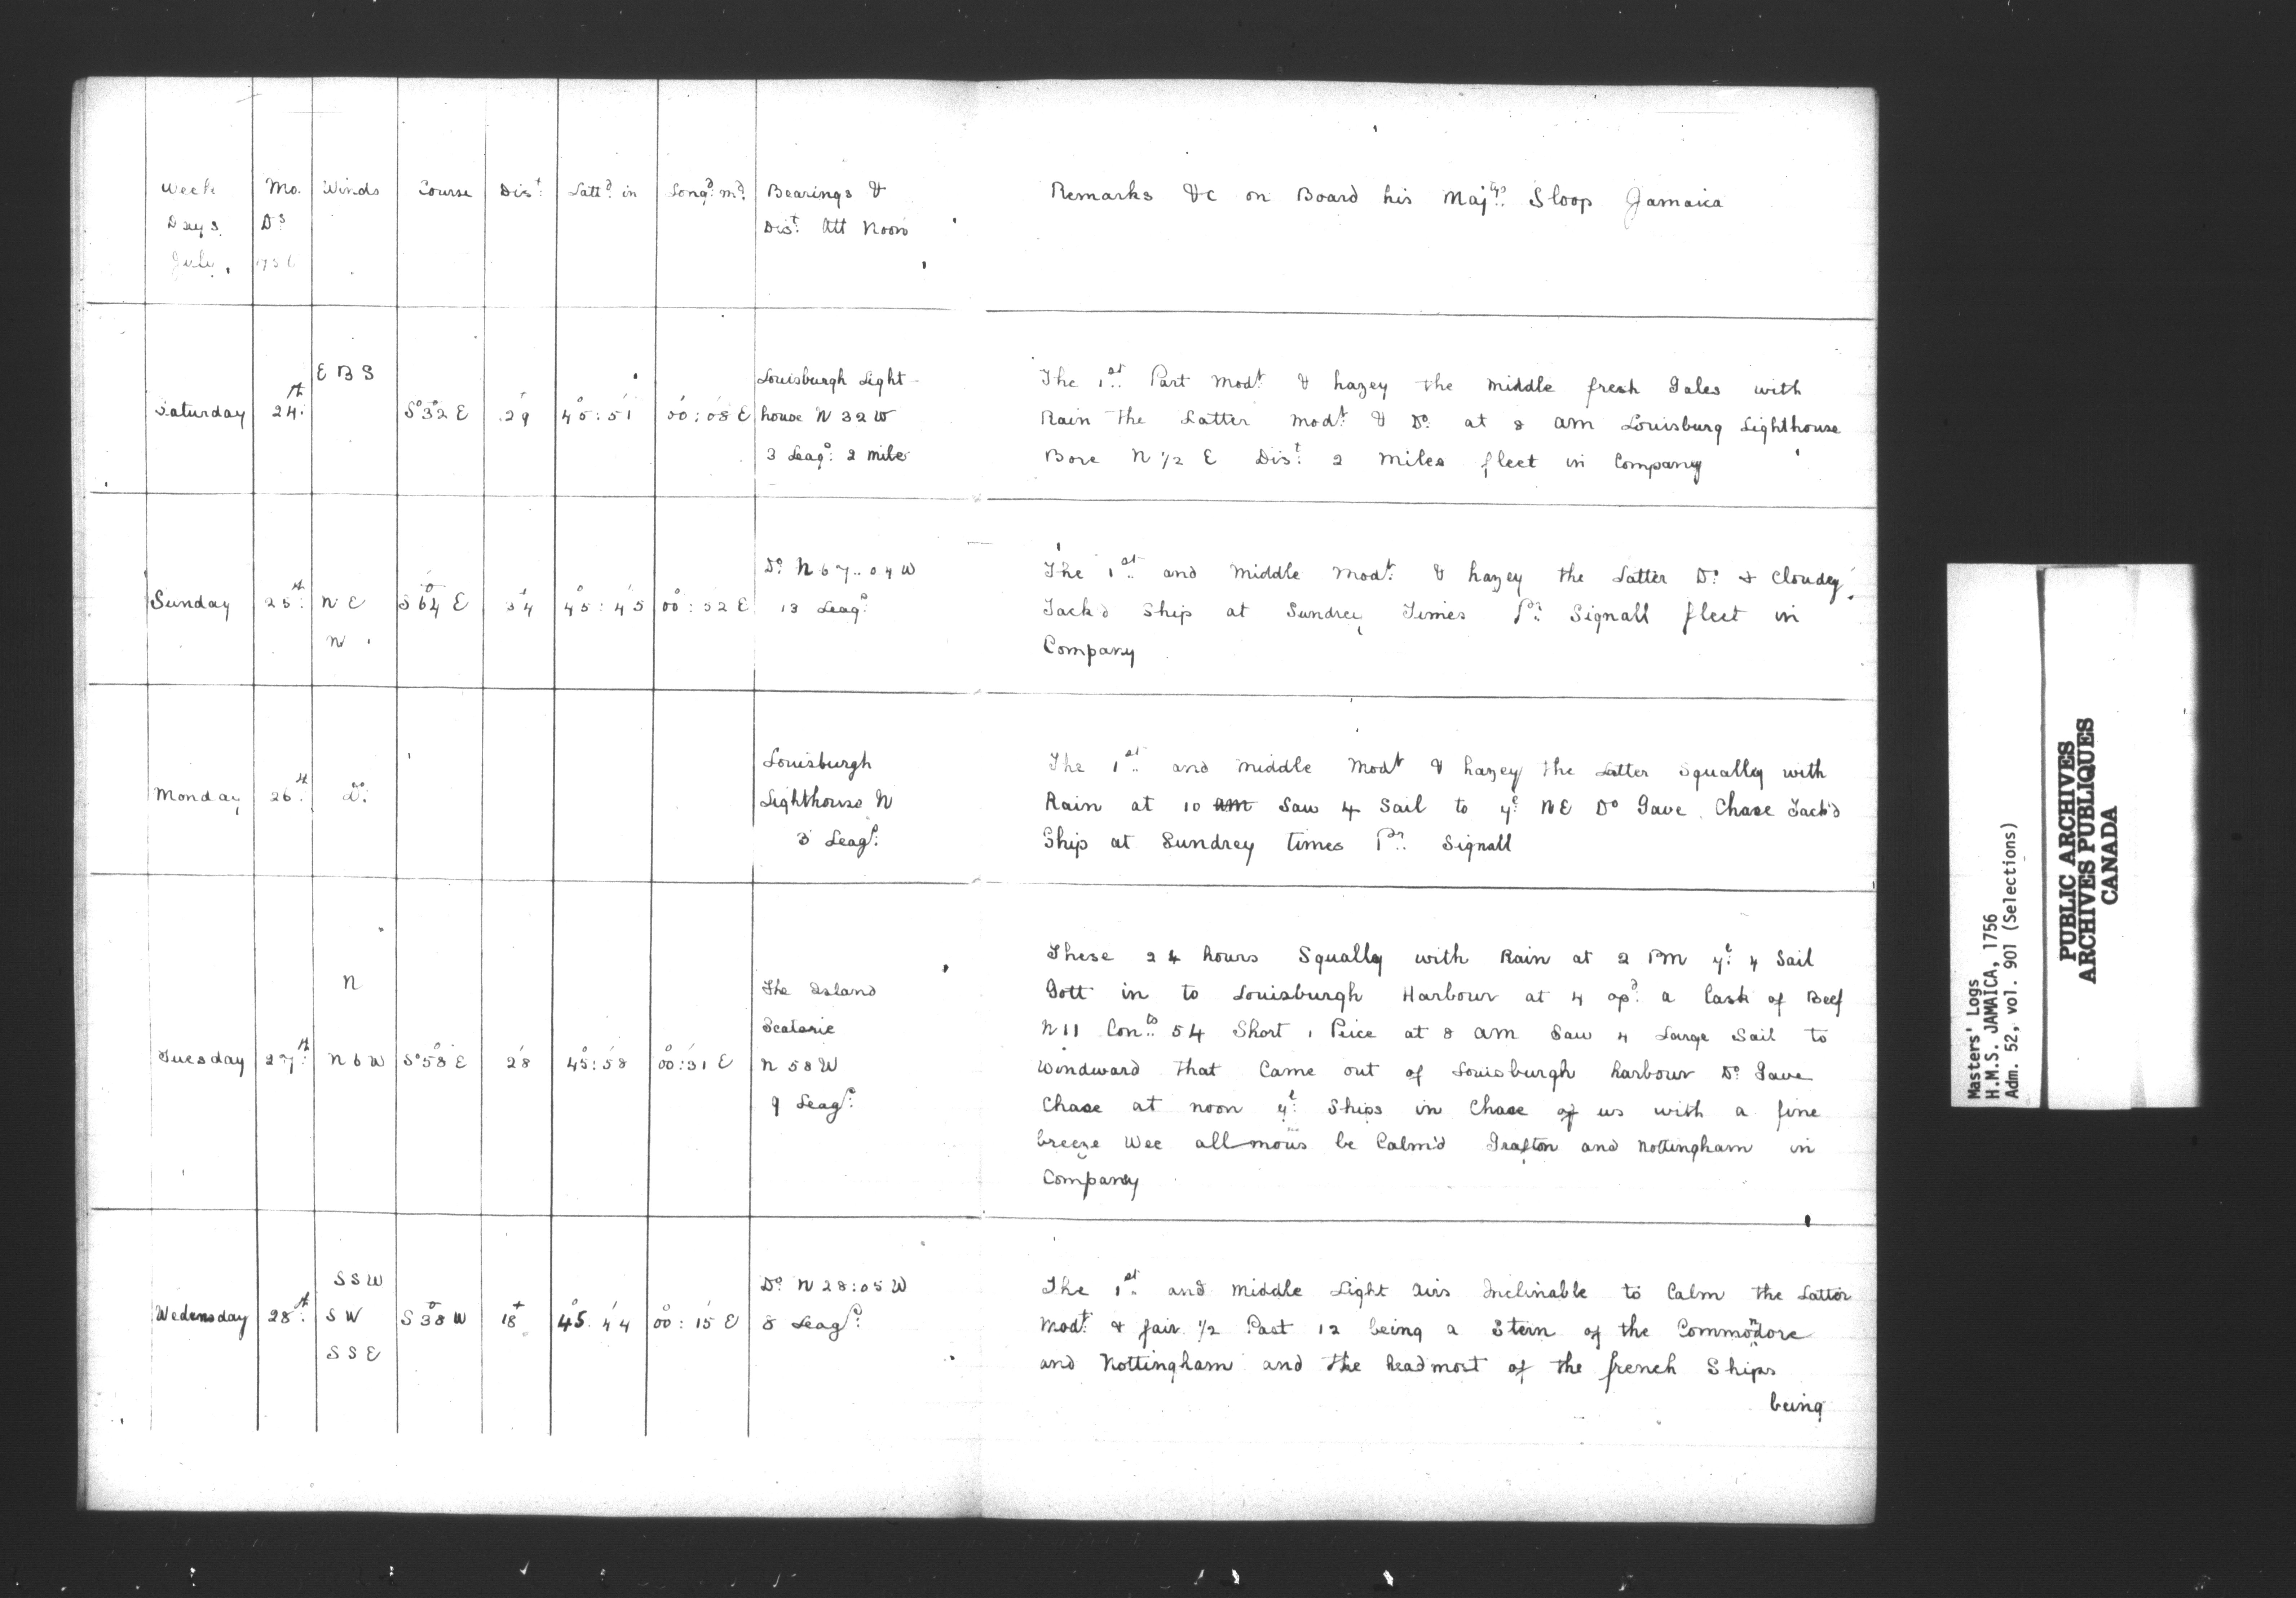 Week Mo. Winds Course Dist. Lattd. in Longd. md. Bearings &
Days Ds Dist. Att Noon
July 1756
Remarks &c on Board his Majtys. Sloop Jamaica
E B S
Saturday 24th. S°32 E 29 45:51 00:08 E
Louisburgh Light-
house N 32 W
3 Leags. 2 mile
The 1st. Part Modt. & hazey the middle fresh Gales with
Rain the Latter Modt. & Do. at 8 am Louisburg Lighthouse
Bore N 1/2 E Dist. 2 Miles fleet in Company
Sunday 25th. N E S 64 E 34 45:45 00:52 E
N
Do. N 67..04 W
13 Leags.
The 1st. and middle Modt. & hazey the Latter Do. & Cloudey.
Tack'd Ship at Sundrey Times Pr. Signall fleet in
Company
Monday 26th. Do.
Louisburgh
Lighthouse N
3 Leags.
The 1st. and middle Modt & hazey the Latter Squally with
Rain at 10 am Saw 4 Sail to ye. NE Do Gave Chase Tack'd
Ship at Sundrey times Pr. Signall
N
Tuesday 27th. N b W S°58 E 28 45:58 00:31 E
The Island
Scatarie
N 58 W
9 Leags.
These 24 hours Squally with Rain at 2 PM ye. 4 Sail
Gott in to Louisburgh Harbour at 4 opd. a Cask of Beef
N 11 Conts. 54 Short 1 Peice at 8 am Saw 4 Large Sail to
Windward that Came out of Louisburgh harbour Do. Gave
Chase at noon ye. Ships in Chase of us with a fine
breeze Wee all mous be Calm'd Grafton and Nottingham in
Company
S S W
Wedensday 28th. S W S 38 W 18 45 44 00:15 E
S S E
Do. N 28:05 W
8 Leags.
The 1st. and middle Light Airs Inclinable to Calm the Latter
Modt. & fair 1/2 Past 12 being a Stern of the Commodore
and Nottingham and the headmost of the french Ships
being
Masters' Logs
H.M.S. JAMAICA, 1756
Adm. 52, vol. 901 (Selections)
PUBLIC ARCHIVES
ARCHIVES PUBLIQUES
CANADA